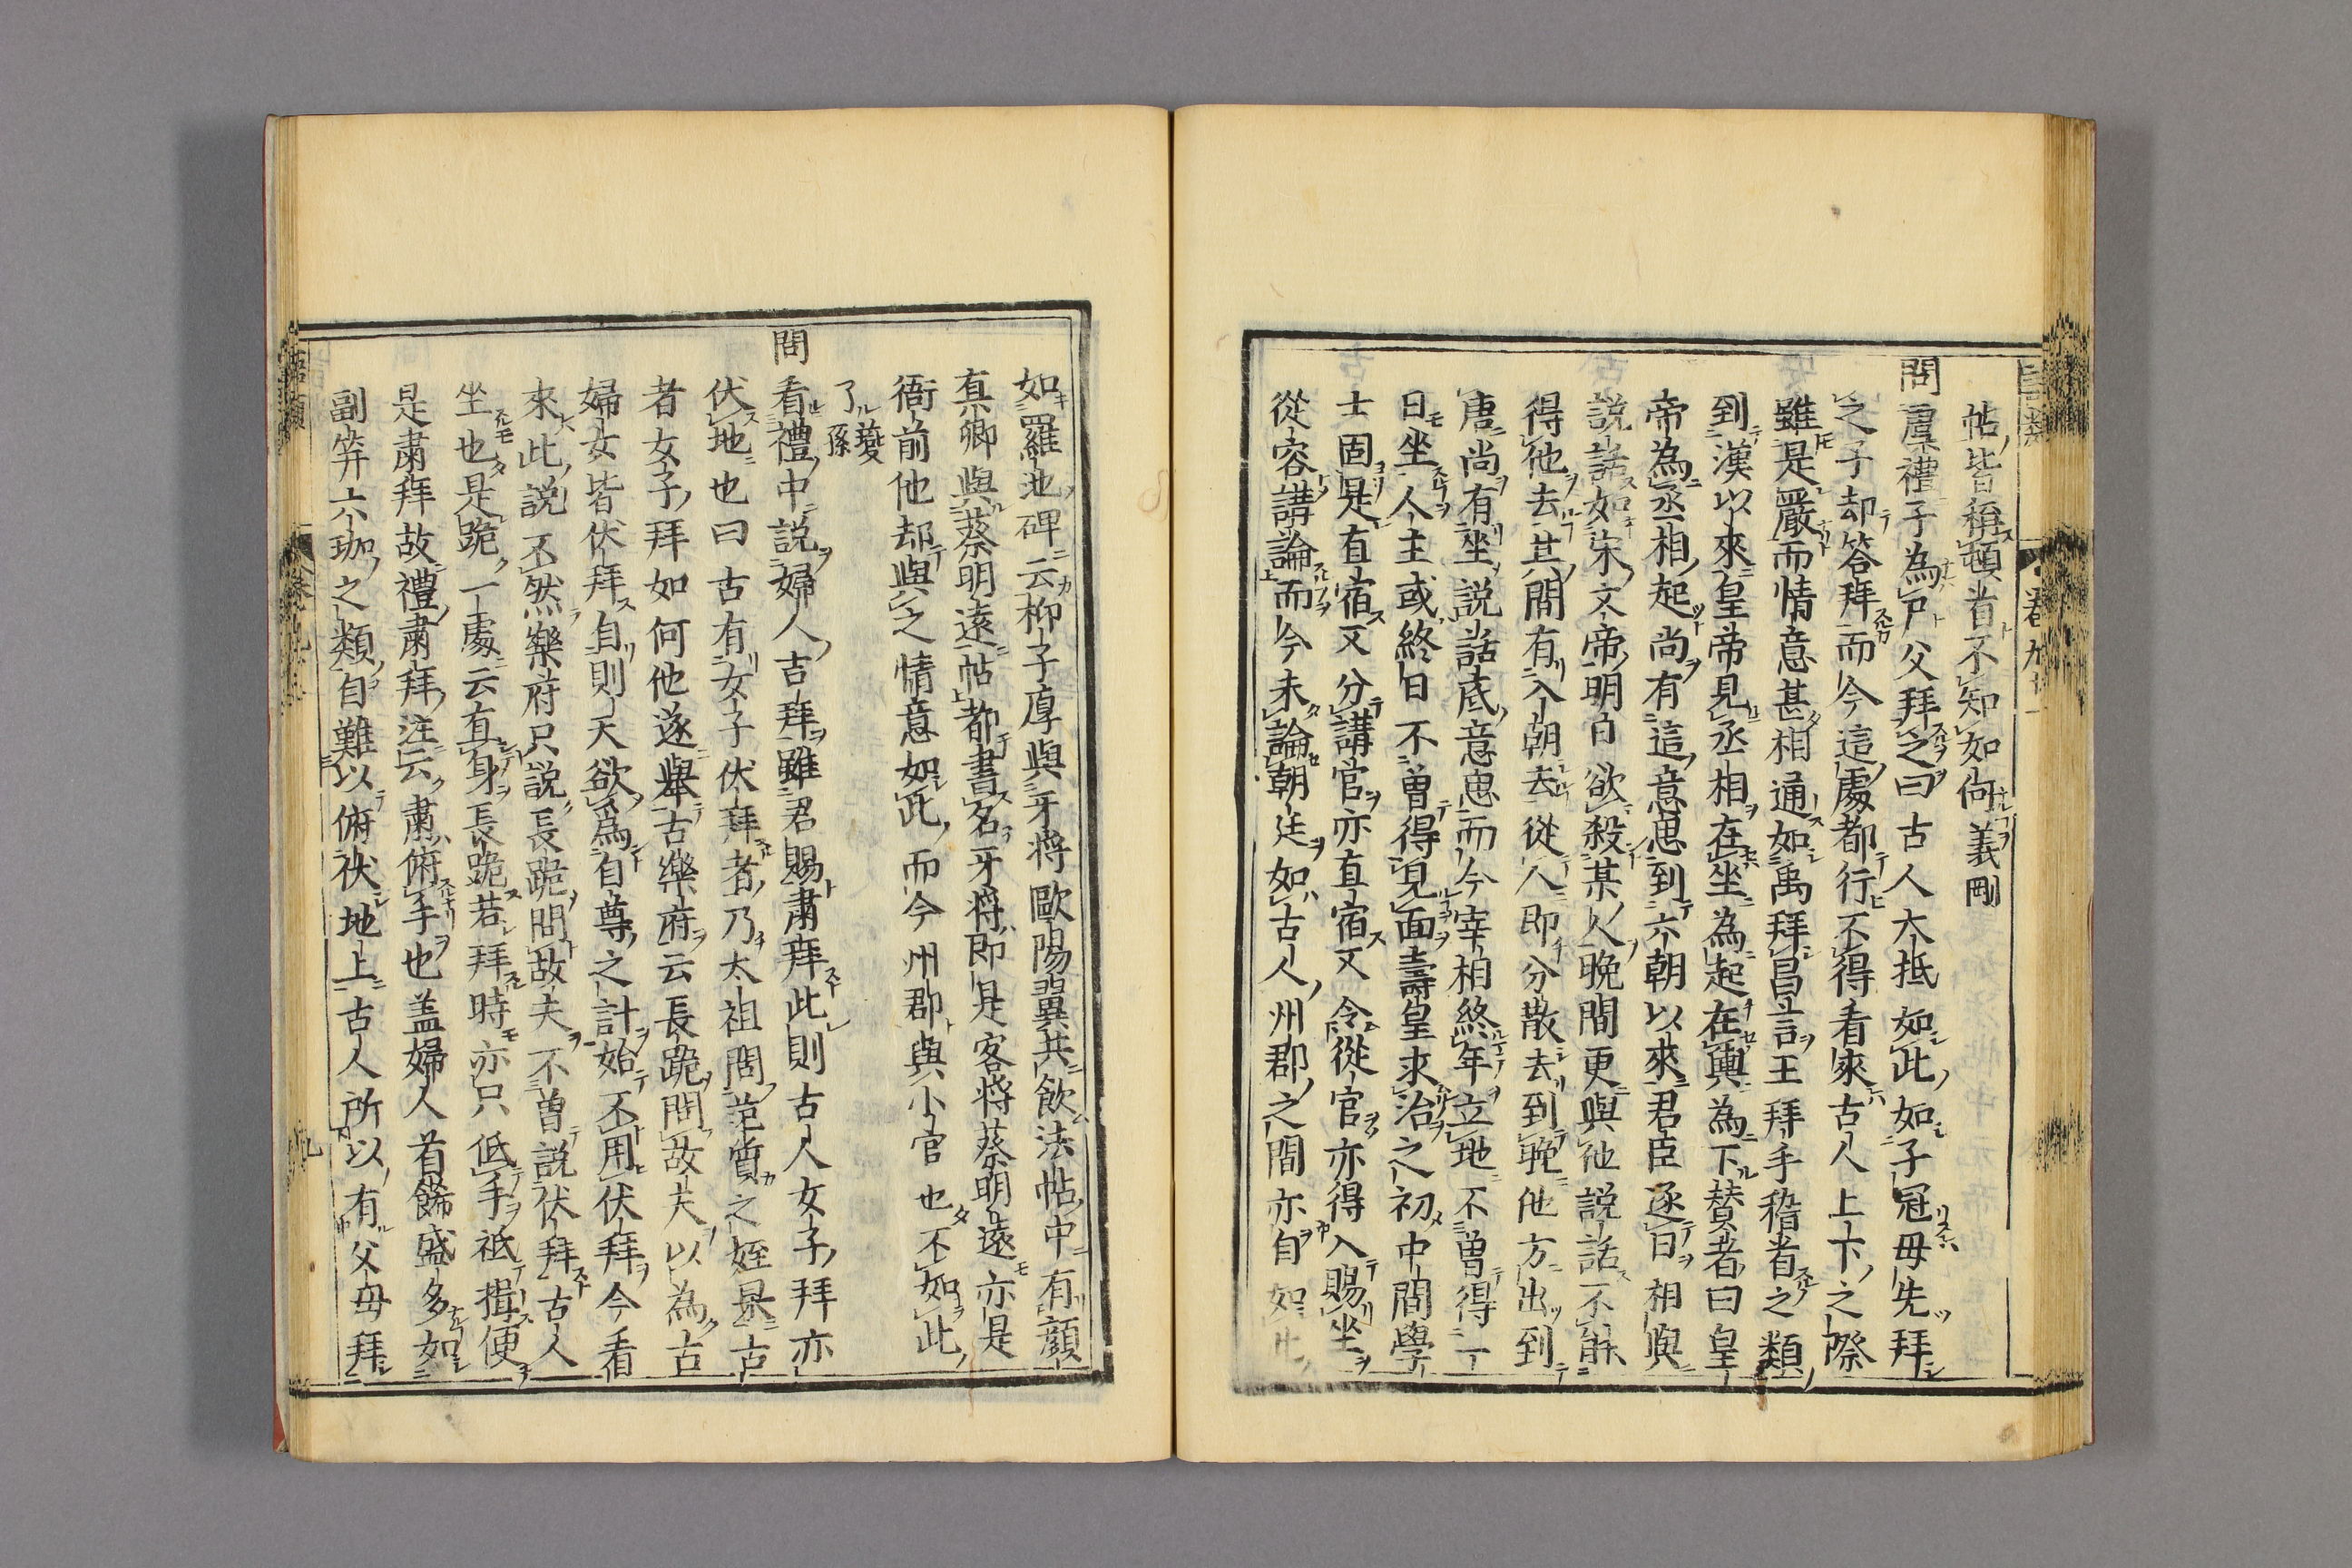 帖皆稱頓首不知如何義剛
問虞禮子為尸父拜之曰古人大抵如此如子冠母先拜
之子却答拜而今這處都行不得看來古人上下之際
雖是嚴而情意甚相通如禹拜昌言王拜手稽首之類
到漢以來皇帝見丞相在坐為起在輿為下賛者曰皇
帝為丞相起尚有這意思到六朝以來君臣逐日相與
說話如宋文帝明日欲殺某人晚間更與他說話不能
得他去其間有入朝去從人即分散去到晚他方出到
唐尚有坐說話底意思而今宰相終年立地不曾得一
日坐人主或終日不曾得見面壽皇求治之初中間學
士固是直宿又分講官亦直宿又令從官亦得入賜坐
從容講論而今未論朝廷如古人州郡之間亦自如此
如羅池碑云柳子厚與牙將歐陽翼共飲法帖中有顔
真卿與蔡明遠帖都書名牙將即是客將蔡明遠亦是
衙前他却與之情意如此而今州郡與小官也不如此
了夔孫
問看禮中說婦人吉拜雖君賜肅拜此則古人女子拜亦
伏地也曰古有女子伏拜者乃太祖問范質之姪杲古
者女子拜如何他遂舉古樂府云長跪問故夫以為古
婦女皆伏拜自則天欲為自尊之計始不用伏拜今看
來此說不然樂府只說長跪問故夫不曾說伏拜古人
坐也是跪一處云直身長跪若拜時亦只低手祗揖便
是肅拜故禮肅拜注云肅俯手也盖婦人首餙盛多如
副笄六珈之類自難以俯伏地上古人所以有父母拜